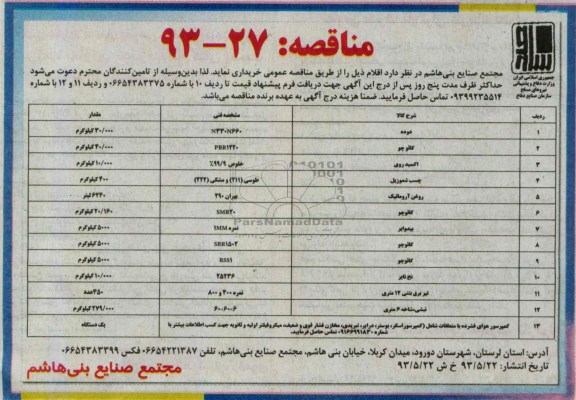 مناقصه: ۲۷-۹۳
جمهوری اسلامی ایران
وزارت دفاع و پشتیبانی
نیروهای مسلح
سازمان صنایع دفاع
مجتمع صنایع بنی‌هاشم در نظر دارد اقلام ذیل را از طریق مناقصه عمومی خریداری نماید. لذا بدین‌وسیله از تامین‌کنندگان محترم دعوت می‌شود
حداکثر ظرف مدت پنج روز پس از درج این آگهی جهت دریافت فرم پیشنهاد قیمت تا ردیف ۱۰ با شماره ۰۶۶۵۴۳۸۳۳۷۵ و ردیف ۱۱ و ۱۲ با شماره
۰۹۳۹۹۲۳۵۵۱۴ تماس حاصل فرمایید. ضمنا هزینه درج آگهی به عهده برنده مناقصه می‌باشد.
ردیف شرح کالا مشخصه فنی مقدار
۱ دوده N330N660 ۳۰/۰۰۰ کیلوگرم
۲ کائوچو PBR1220 ۳۰/۰۰۰ کیلوگرم
۳ اکسید روی خلوص ۹۹/۹٪ ۱۰/۰۰۰ کیلوگرم
۴ چسب شموزیل طوسی (۲۱۱) و مشکی (۲۲۲) ۴۰۰ کیلوگرم
۵ روغن آروماتیک بهران ۲۹۰ ۶۲۴۰ لیتر
۶ کائوچو SMR20 ۲۰/۱۶۰ کیلوگرم
۷ بیدوایر نمره ۱MM ۵۰۰۰ کیلوگرم
۸ کائوچو SBR1502 ۵۰۰۰ کیلوگرم
۹ کائوچو RSS1 ۵۰۰۰ کیلوگرم
۱۰ نخ تایر ۲۵۲۳۶ ۱۰/۰۰۰ کیلوگرم
۱۱ تیر برق بتنی ۱۲ متری نمره ۴۰۰ و ۸۰۰ ۳۵۰ عدد
۱۲ نبشی، شاخه ۶ متری ۶۰۰۶۰۰۶ ۲۷۹/۰۰۰ کیلوگرم
۱۳ کمپرسور هوای فشرده با متعلقات شامل (کمپرسور اسکرو، بوستر، درایر، تبریدی، مخازن فشار قوی و ضعیف، میکروفیلتر اولیه و ثانویه جهت کسب اطلاعات بیشتر با یک دستگاه
۰۹۱۶۶۹۹۱۸۳۰ تماس حاصل فرمایید.
ParsNamadData
آدرس: استان لرستان، شهرستان دورود، میدان کربلا، خیابان بنی هاشم، مجتمع صنایع بنی‌هاشم، تلفن ۰۶۶۵۴۲۲۱۳۸۷ فکس ۰۶۶۵۴۳۸۳۳۹۹
تاریخ انتشار: ۹۳/۵/۲۲ خ ش ۹۳/۵/۲۲
مجتمع صنایع بنی‌هاشم